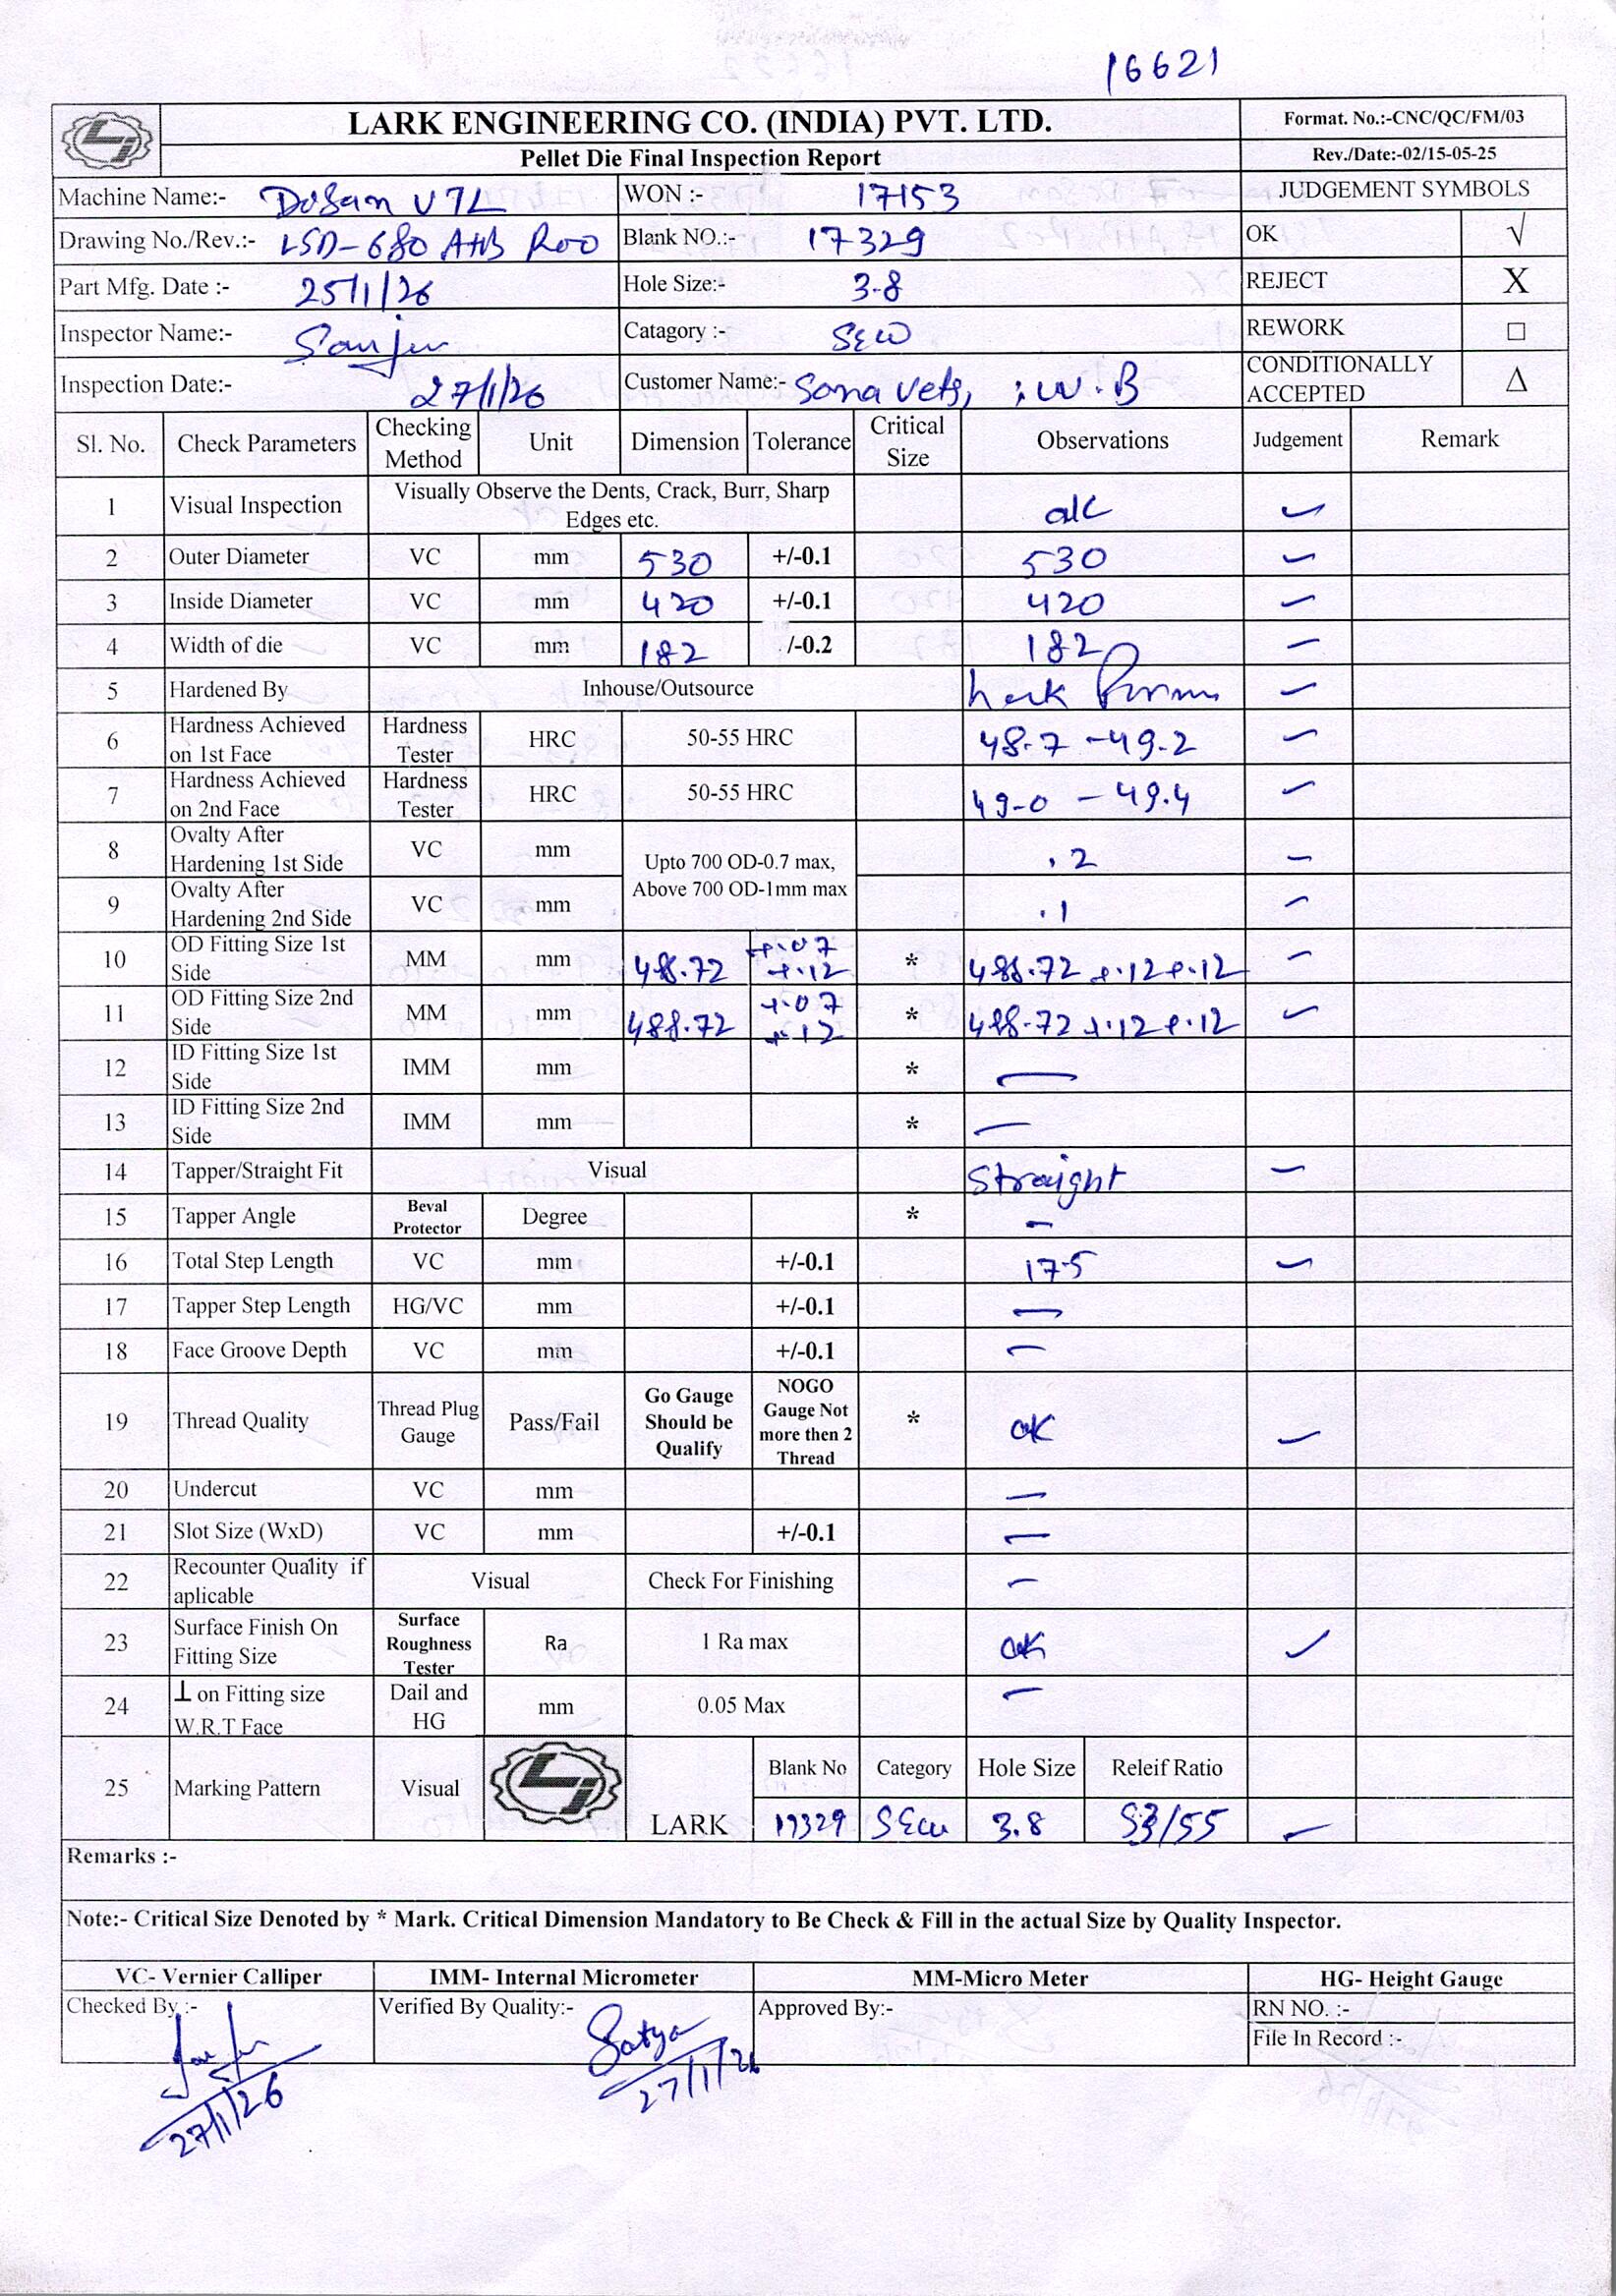 16621
LARK ENGINEERING CO. (INDIA) PVT. LTD.
Format. No.:-CNC/QC/FM/03
Pellet Die Final Inspection Report
Rev./Date:-02/15-05-25
Machine Name:- DoSan VTL WON :- 17153 JUDGEMENT SYMBOLS
Drawing No./Rev.:- LSD-680 AHB R00 Blank NO.:- 17329 OK √
Part Mfg. Date :- 25/1/26 Hole Size:- 3.8 REJECT X
Inspector Name:- Sanju Catagory :- SEW REWORK □
Inspection Date:- 27/1/26 Customer Name:- Sona Vets, ; W.B CONDITIONALLY ACCEPTED Δ
Sl. No. Check Parameters Checking Method Unit Dimension Tolerance Critical Size Observations Judgement Remark
1 Visual Inspection Visually Observe the Dents, Crack, Burr, Sharp Edges etc. ok ✓
2 Outer Diameter VC mm 530 +/-0.1 530 ✓
3 Inside Diameter VC mm 420 +/-0.1 420 ✓
4 Width of die VC mm 182 /-0.2 182 ✓
5 Hardened By Inhouse/Outsource ✓
6 Hardness Achieved on 1st Face Hardness Tester HRC 50-55 HRC 48.7 - 49.2 ✓
7 Hardness Achieved on 2nd Face Hardness Tester HRC 50-55 HRC 49-0 - 49.4 ✓
8 Ovalty After Hardening 1st Side VC mm Upto 700 OD-0.7 max, Above 700 OD-1mm max .2 ✓
9 Ovalty After Hardening 2nd Side VC mm .1 ✓
10 OD Fitting Size 1st Side MM mm 488.72 +.07 +.12 * 488.72 +.12 +.12 ✓
11 OD Fitting Size 2nd Side MM mm 488.72 +.07 +.12 * 488.72 +.12 +.12 ✓
12 ID Fitting Size 1st Side IMM mm * —
13 ID Fitting Size 2nd Side IMM mm * —
14 Tapper/Straight Fit Visual Straight ✓
15 Tapper Angle Beval Protector Degree * —
16 Total Step Length VC mm +/-0.1 17.5 ✓
17 Tapper Step Length HG/VC mm +/-0.1 —
18 Face Groove Depth VC mm +/-0.1 —
19 Thread Quality Thread Plug Gauge Pass/Fail Go Gauge Should be Qualify NOGO Gauge Not more then 2 Thread * ok ✓
20 Undercut VC mm —
21 Slot Size (WxD) VC mm +/-0.1 —
22 Recounter Quality if aplicable Visual Check For Finishing —
23 Surface Finish On Fitting Size Surface Roughness Tester Ra 1 Ra max ok ✓
24 ⊥ on Fitting size W.R.T Face Dail and HG mm 0.05 Max —
25 Marking Pattern Visual LARK Blank No Category Hole Size Releif Ratio
17329 SEW 3.8 53/55 ✓
Remarks :-
Note:- Critical Size Denoted by * Mark. Critical Dimension Mandatory to Be Check & Fill in the actual Size by Quality Inspector.
VC- Vernier Calliper IMM- Internal Micrometer MM-Micro Meter HG- Height Gauge
Checked By :- Verified By Quality:- Satya Approved By:- RN NO. :-
File In Record :-
27/1/26 27/1/26